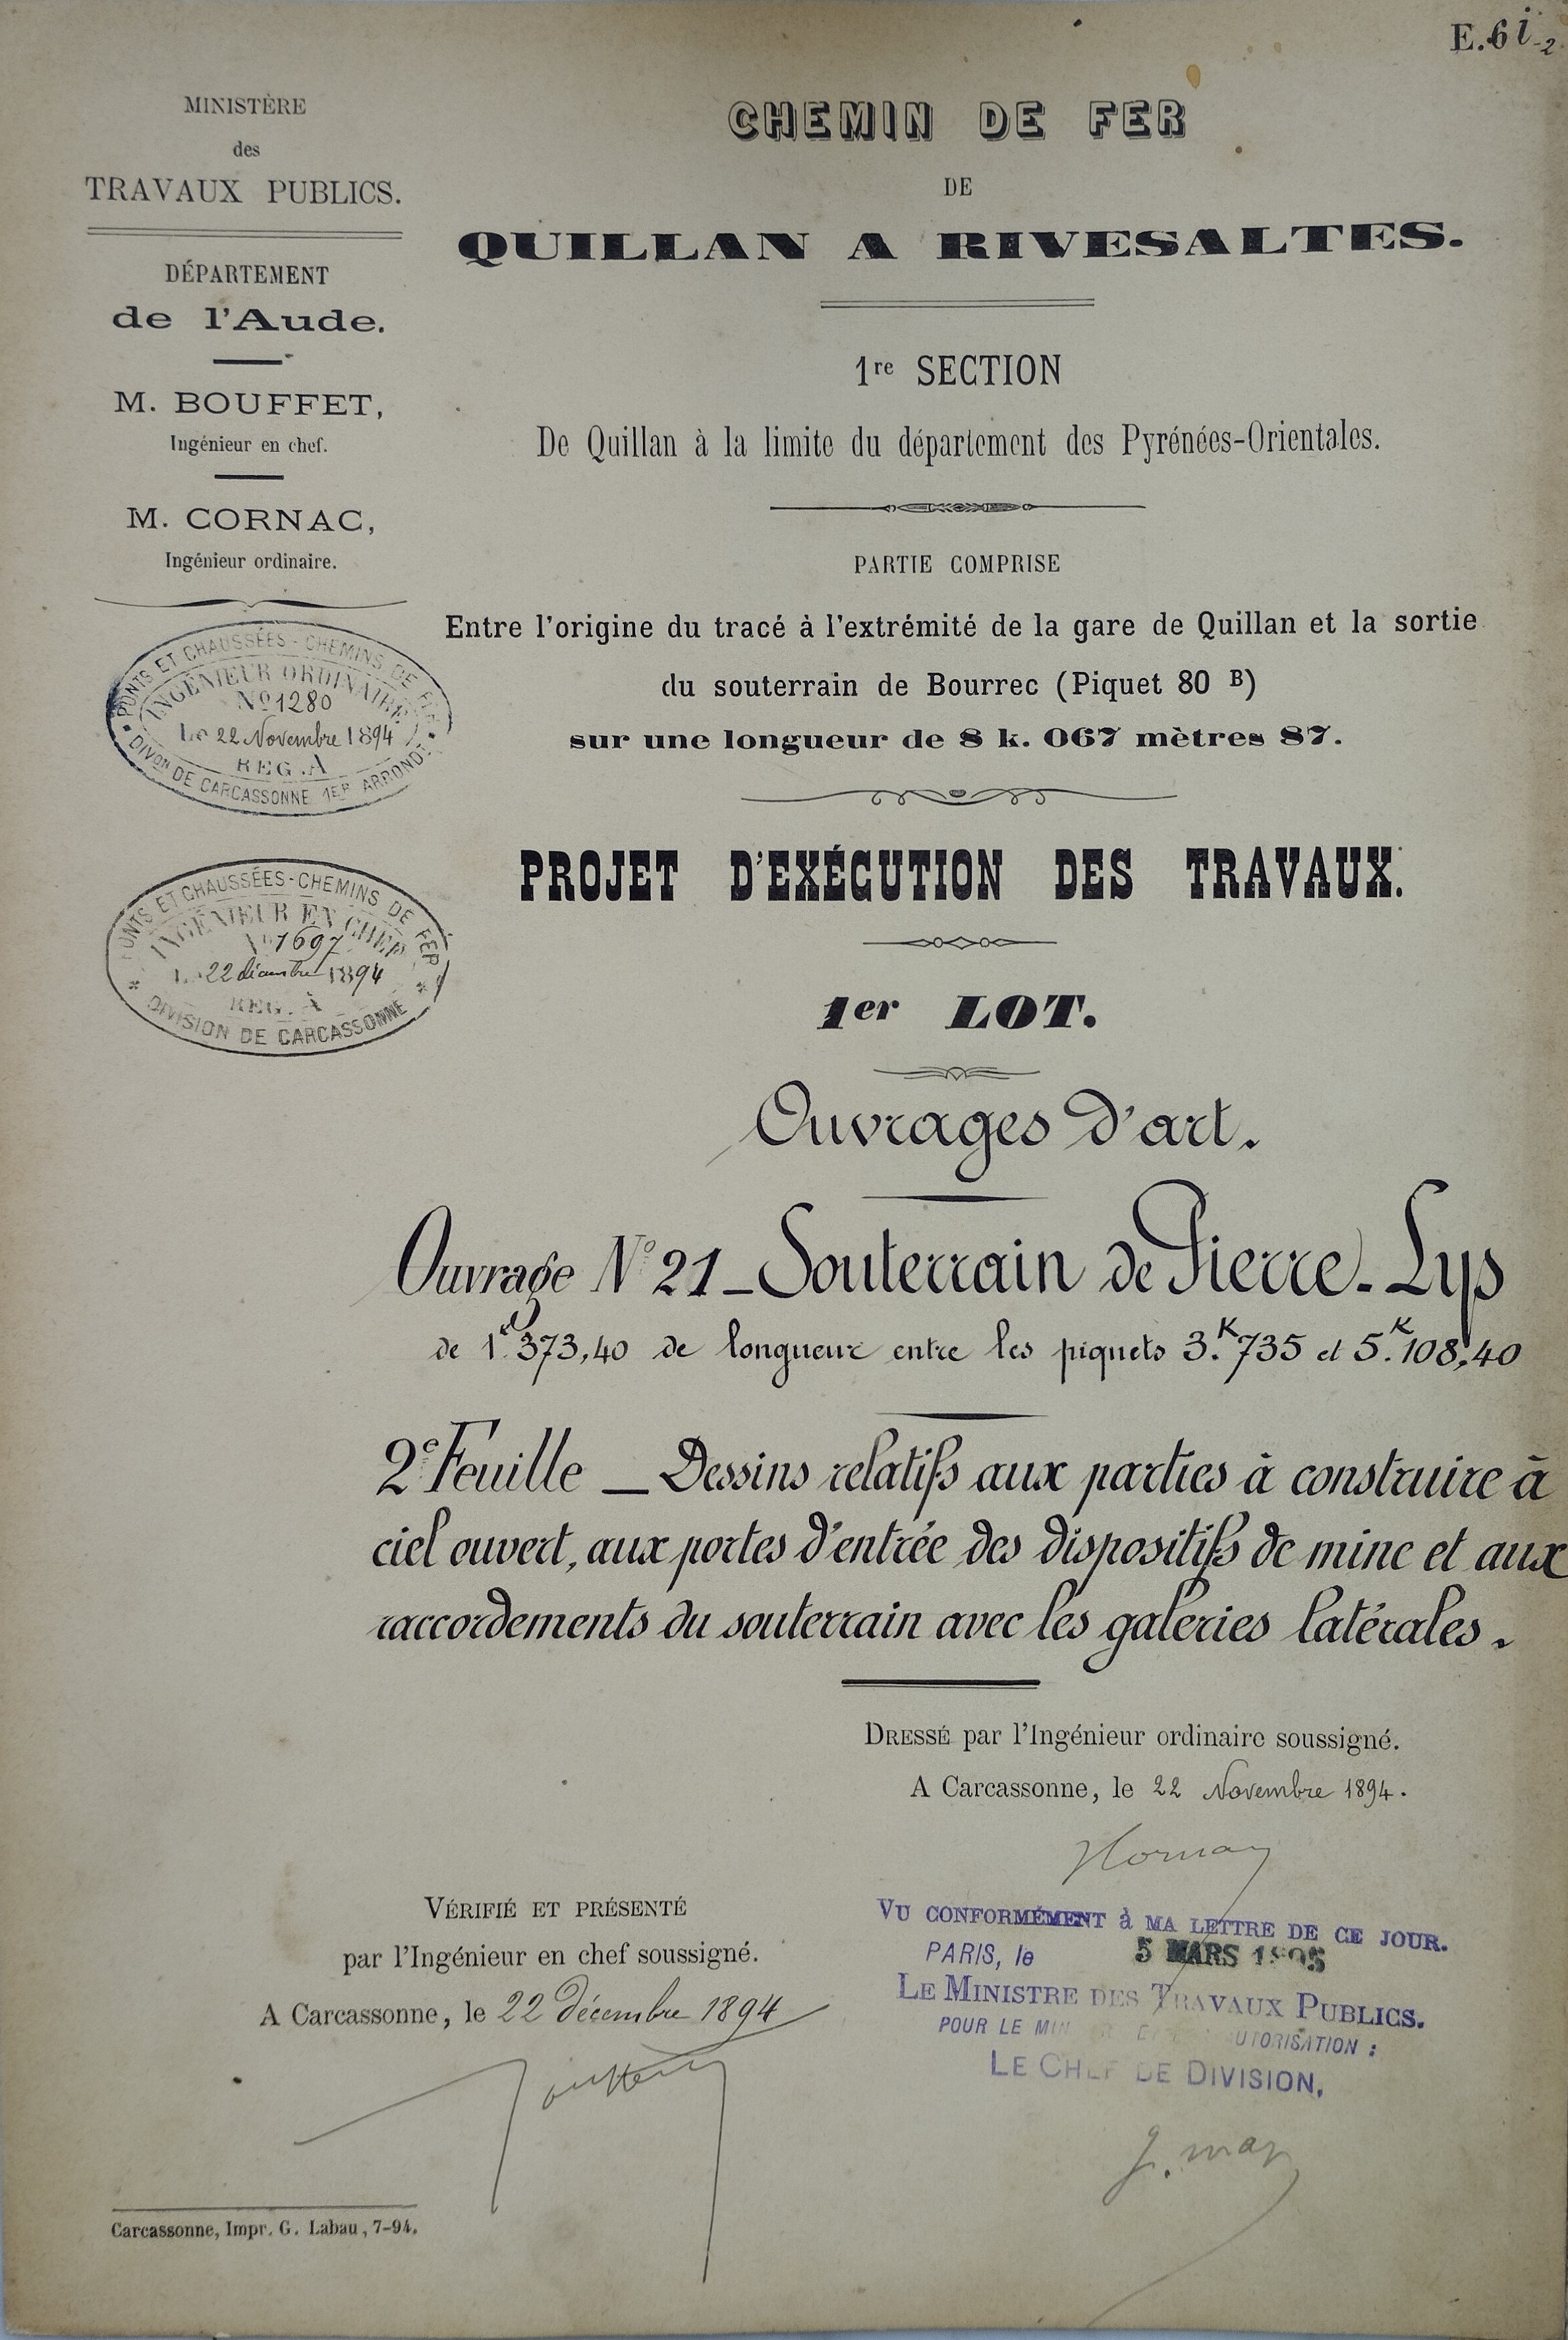 E.6 i-2
MINISTÈRE
des
TRAVAUX PUBLICS.
DÉPARTEMENT
de l'Aude.
M. BOUFFET,
Ingénieur en chef.
M. CORNAC,
Ingénieur ordinaire.
PONTS ET CHAUSSÉES - CHEMINS DE FER
INGÉNIEUR ORDINAIRE
No 1280
Le 22 Novembre 1894
REG. A
DIVon DE CARCASSONNE 1ER ARRONDt
PONTS ET CHAUSSÉES - CHEMINS DE FER
INGÉNIEUR EN CHEF
No 1697
22 décembre 1894
REG. A
DIVISION DE CARCASSONNE
CHEMIN DE FER
DE
QUILLAN A RIVESALTES.
1re SECTION
De Quillan à la limite du département des Pyrénées-Orientales.
PARTIE COMPRISE
Entre l'origine du tracé à l'extrémité de la gare de Quillan et la sortie
du souterrain de Bourrec (Piquet 80 B)
sur une longueur de 8 k. 067 mètres 87.
PROJET D'EXÉCUTION DES TRAVAUX.
1er LOT.
Ouvrages d'art.
Ouvrage No 21 _ Souterrain de Pierre-Lys
de 1.373,40 de longueur entre les piquets 3.K735 et 5.K108,40
2e Feuille _ Dessins relatifs aux parties à construire à
ciel ouvert, aux portes d'entrée des dispositifs de mine et aux
raccordements du souterrain avec les galeries latérales.
DRESSÉ par l'Ingénieur ordinaire soussigné.
A Carcassonne, le 22 Novembre 1894.
VÉRIFIÉ ET PRÉSENTÉ
par l'Ingénieur en chef soussigné.
A Carcassonne, le 22 décembre 1894
VU CONFORMÉMENT à MA LETTRE DE CE JOUR.
PARIS, le 5 MARS 1895
LE MINISTRE DES TRAVAUX PUBLICS.
POUR LE AUTORISATION :
LE CHEF DE DIVISION,
Carcassonne, Impr. G. Labau, 7-94.